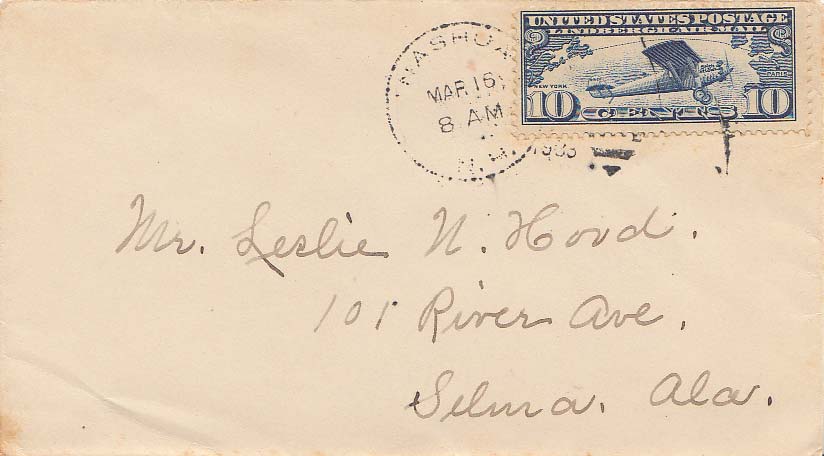 UNITED STATES POSTAGE
LINDBERGH AIR MAIL
NEW YORK
PARIS
10 10
NASHUA
MAR 16
8 AM
N.H.
Mr. Leslie N. Hood.
101 River Ave.
Selma. Ala.